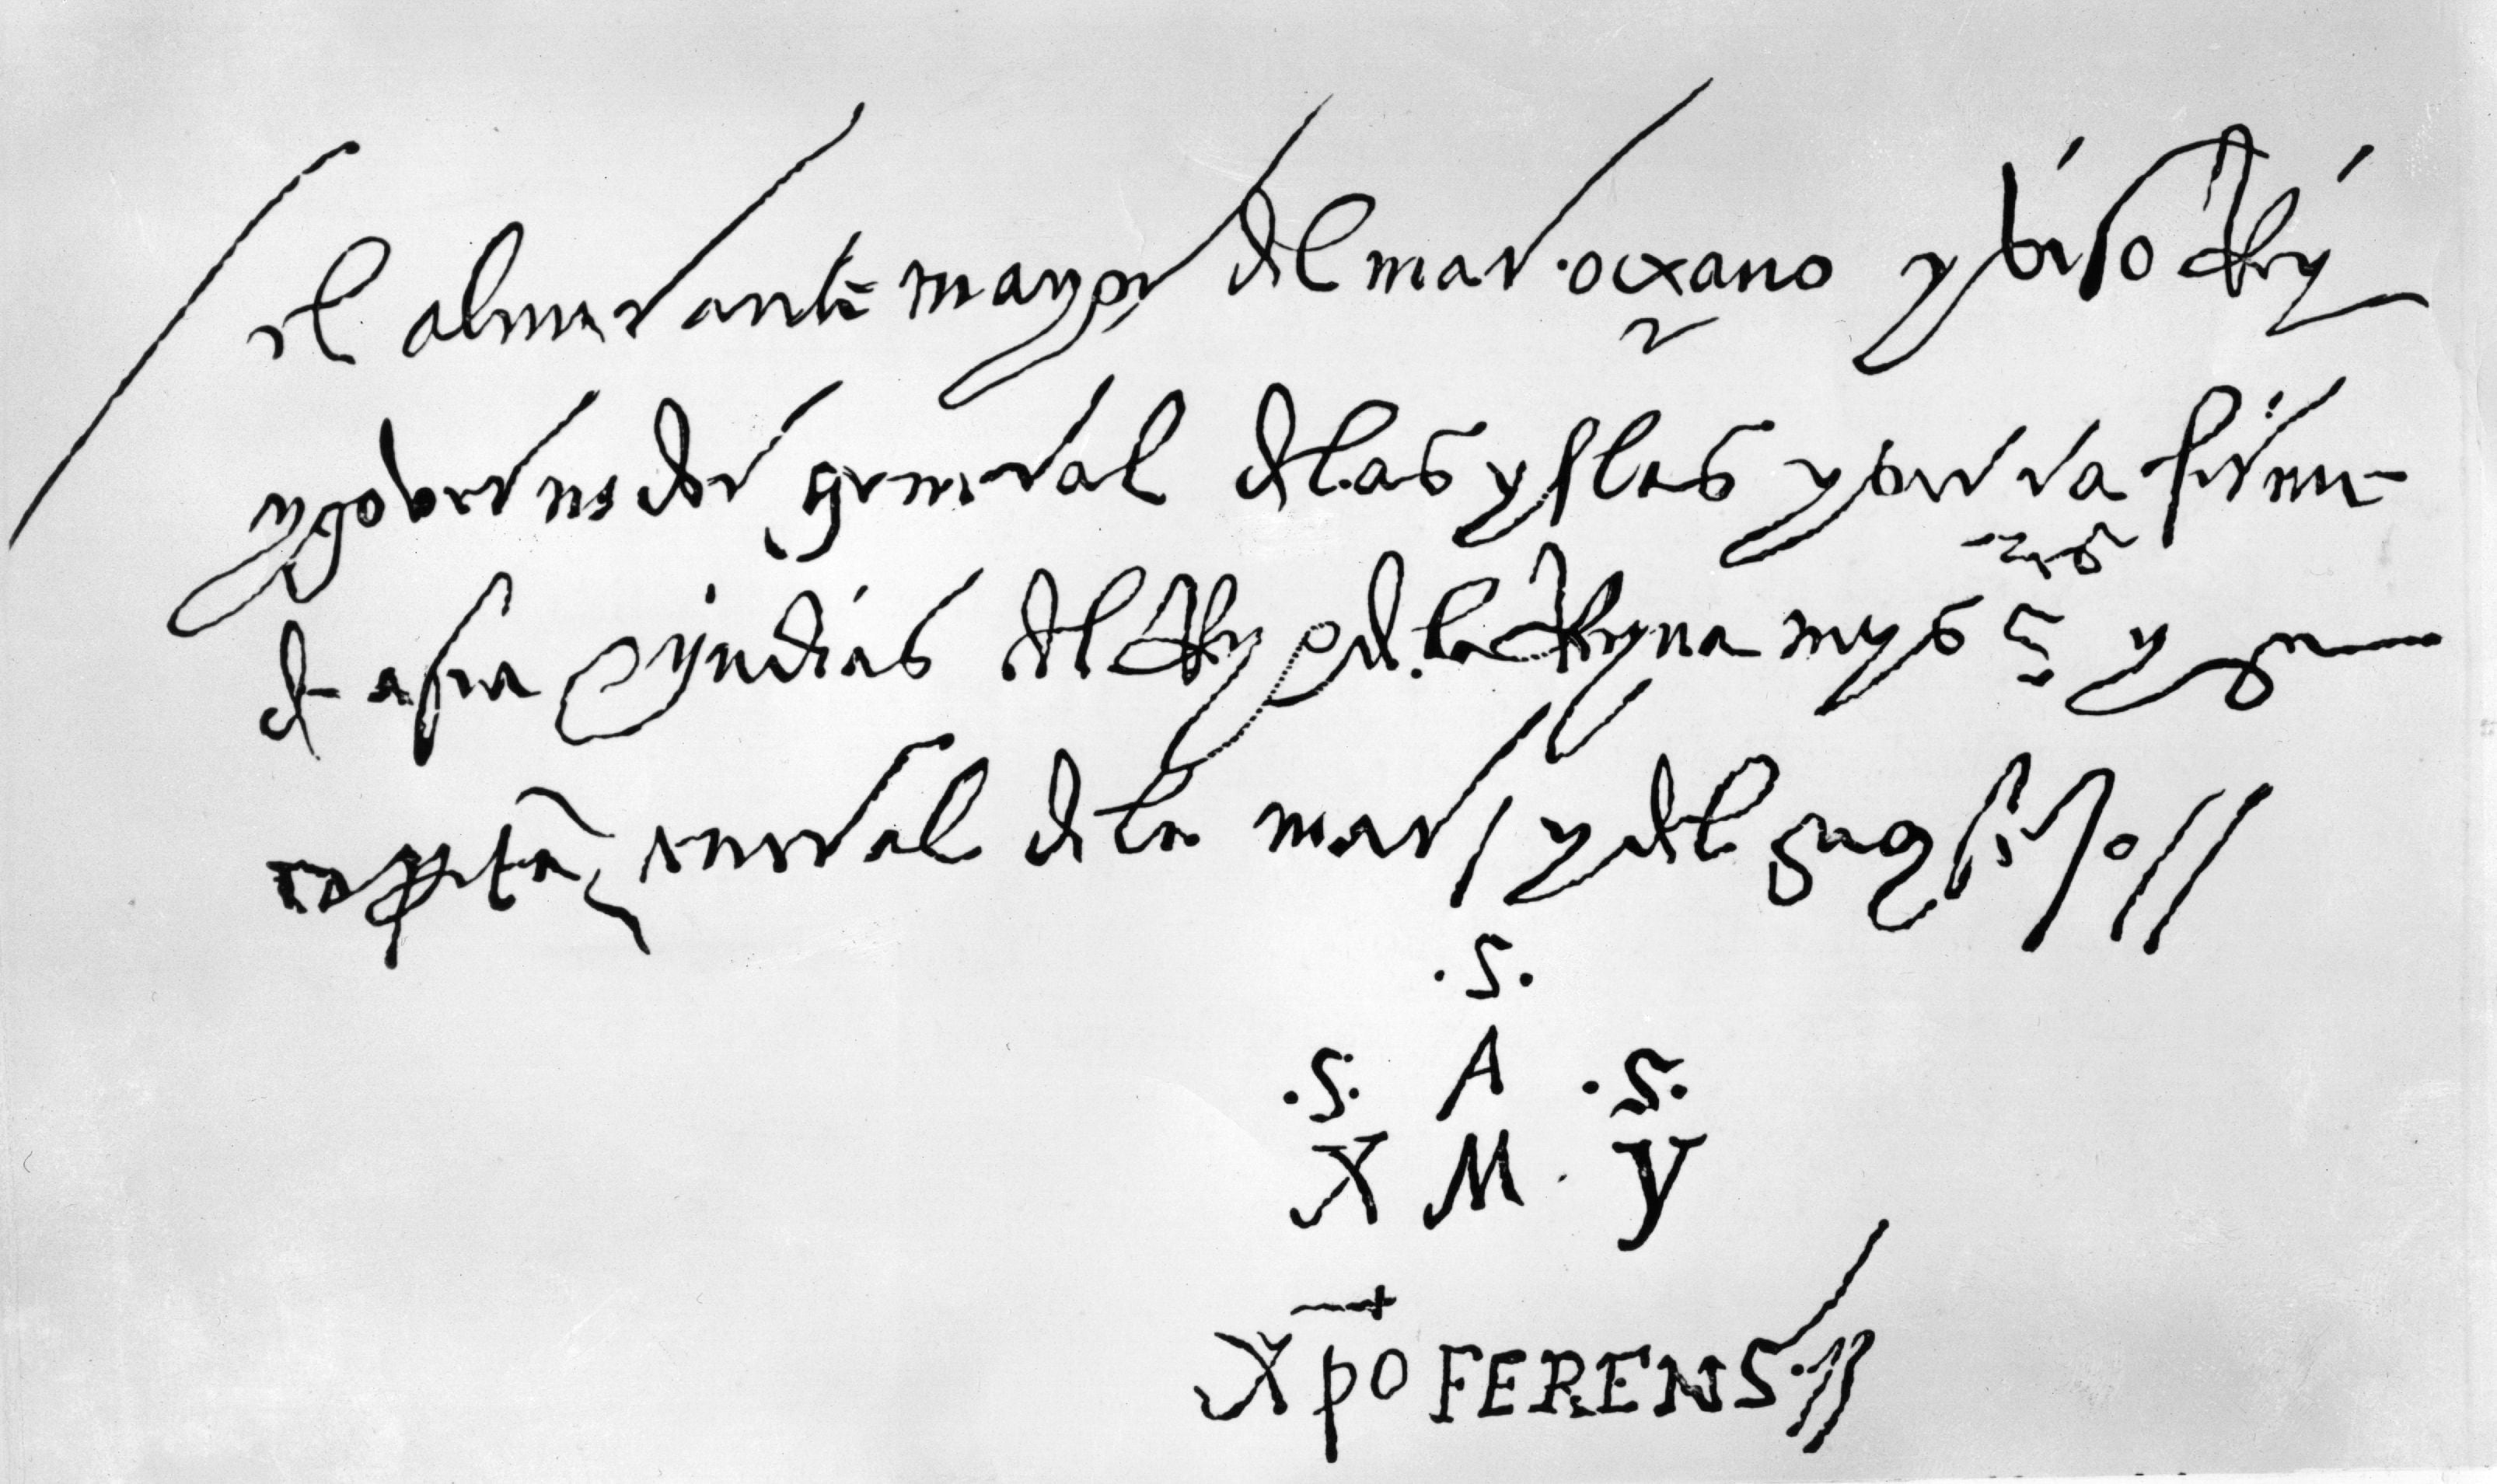 el almirante mayor del mar oceano y viso Rey
y governador general de las yslas y tierra firme
de asia e yndias del Rey e de la Reyna mys s<sup>res</sup> y su
capitã general de la mar y del su qsejo //
.S.
.S. A .S.
X M Y
Xp̄o FERENS.//